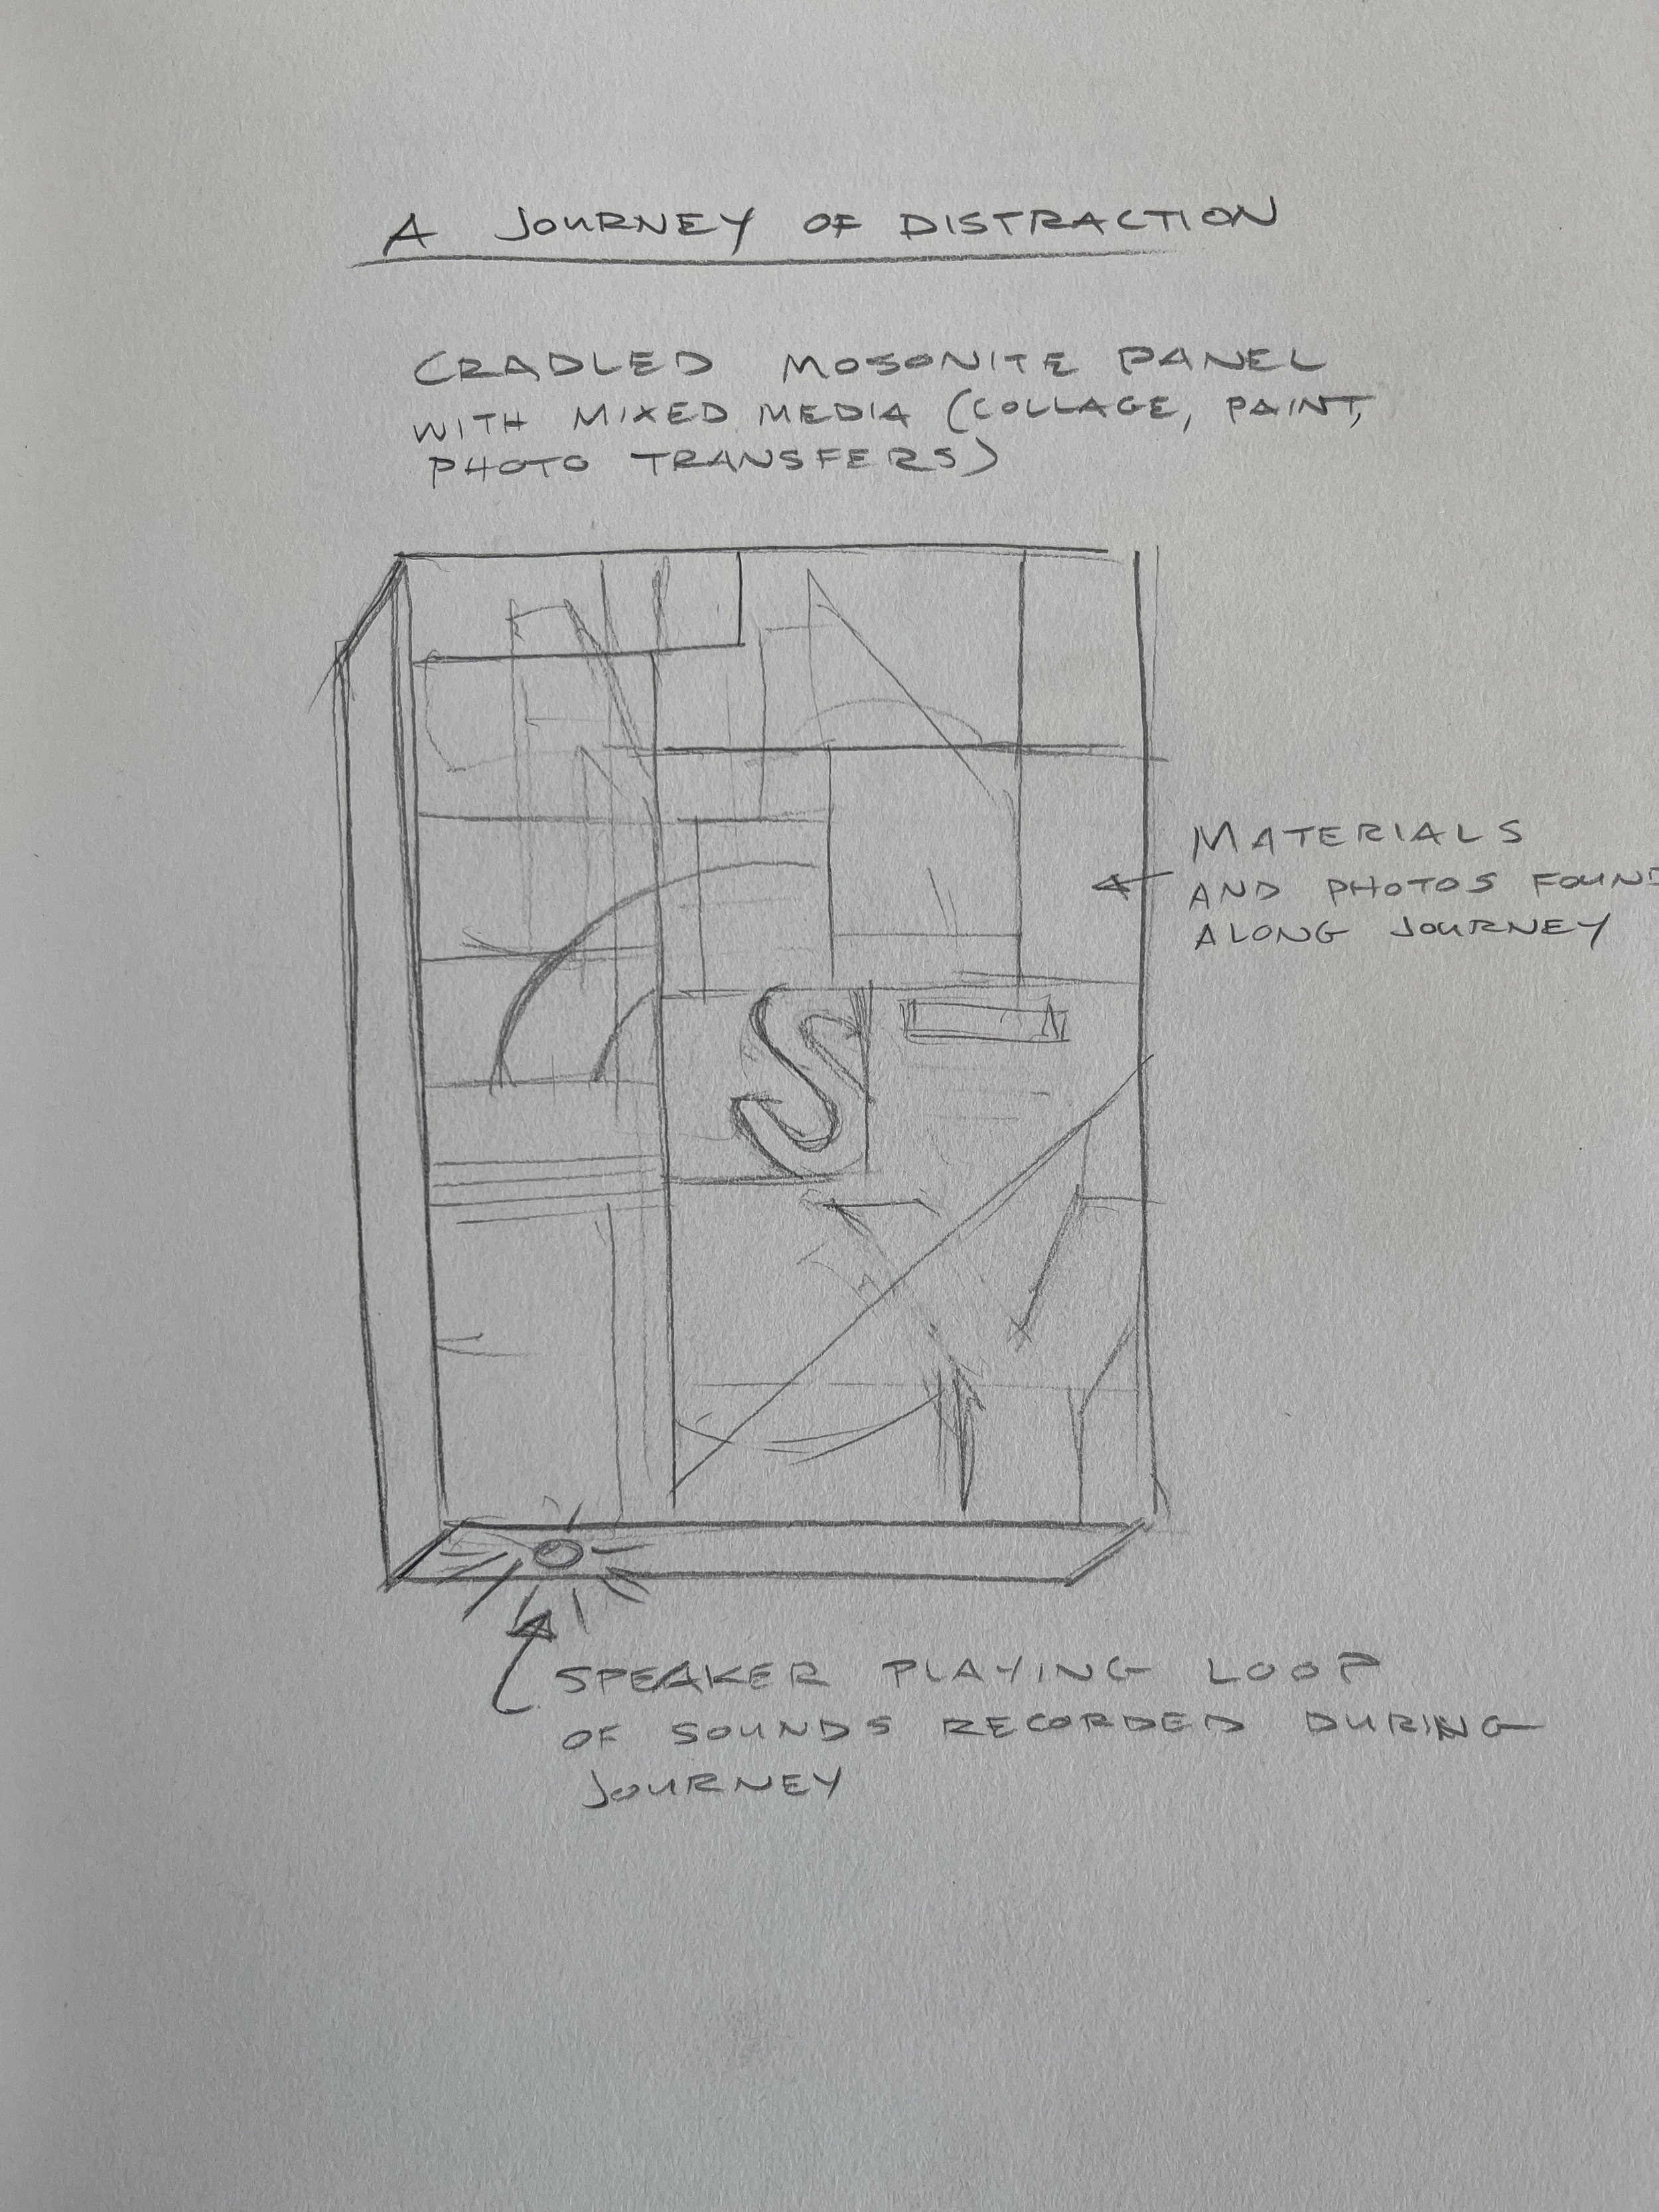 A JOURNEY OF DISTRACTION
CRADLED MOSONITE PANEL
WITH MIXED MEDIA (COLLAGE, PAINT,
PHOTO TRANSFERS)
MATERIALS
AND PHOTOS FOUND
ALONG JOURNEY
S
SPEAKER PLAYING LOOP
OF SOUNDS RECORDED DURING
JOURNEY